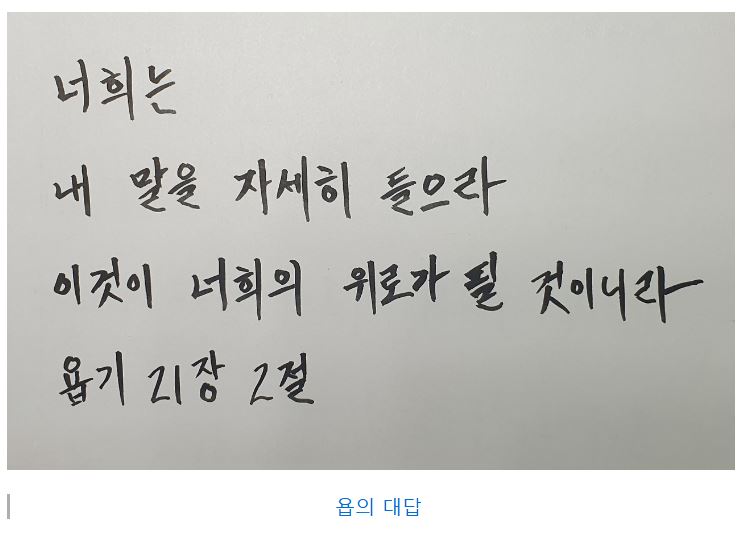 너희는
내 말을 자세히 들으라
이것이 너희의 위로가 될 것이니라
욥기 21장 2절
욥의 대답